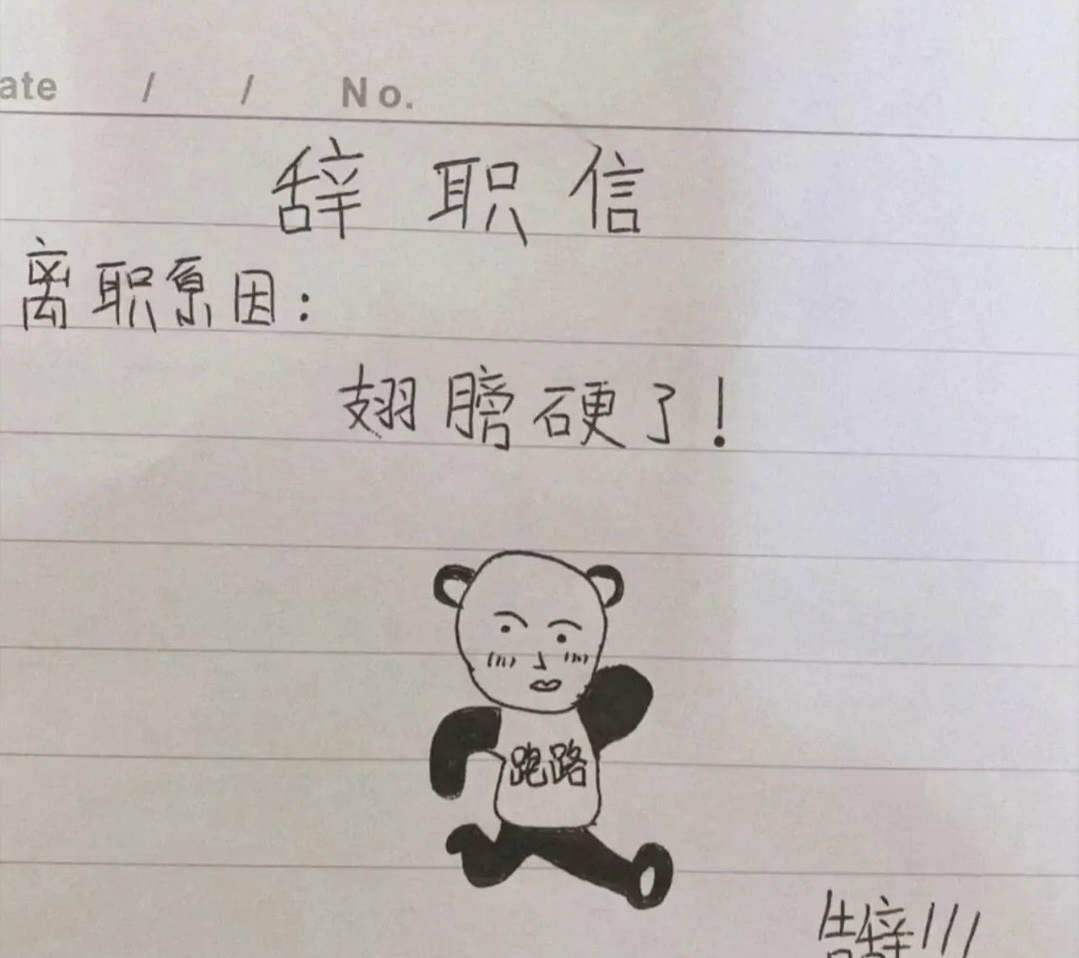 ate / / No.
辞职信
离职原因：
翅膀硬了！
跑路
告辞!!!